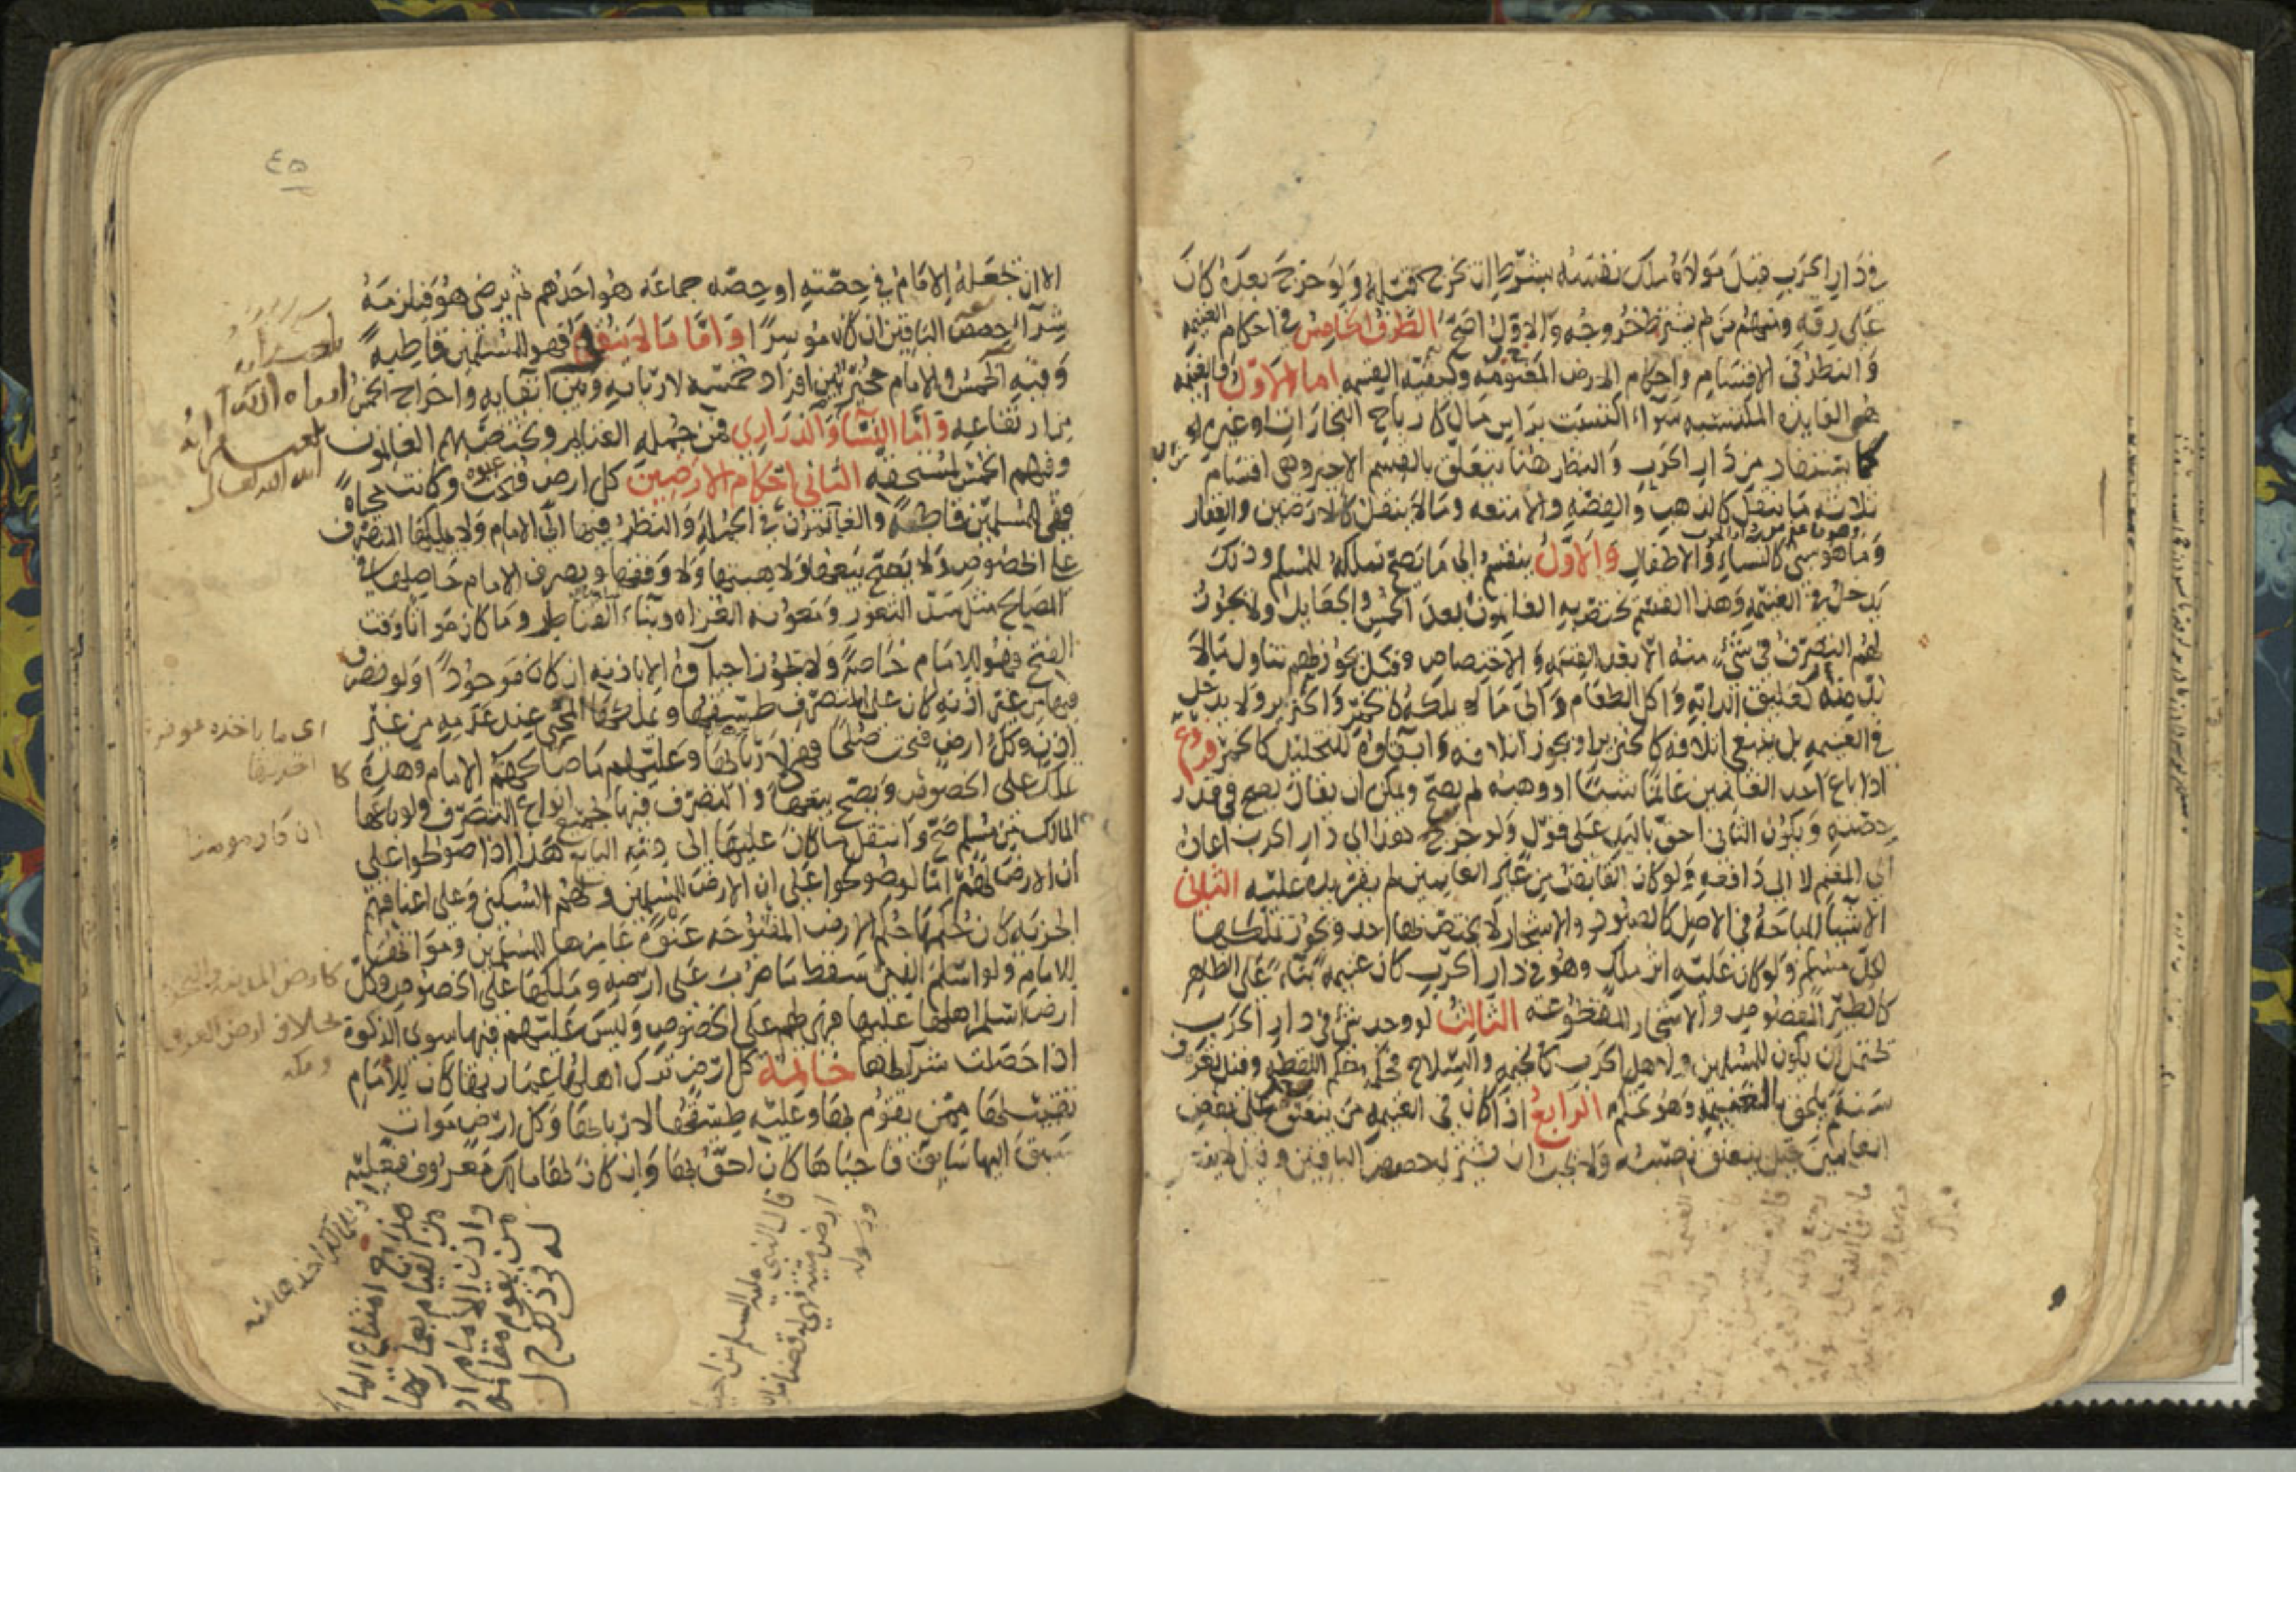 في دار الحرب قبل مولاه ملك نفسه بشرط ان يخرج قبله ولو خرج بعده كان
على رقه ومنهم من لم يشترط خروجه والاول اصح الطرف الخامس في احكام الغنيمة
والنظر في الاقسام واحكام الارض المفتوحة وكيفية القسمة اما الاول فالغنيمة
هي الفايدة المكتسبة سواء اكتسبت براس مال كارباح التجارات او غيره
كما يستفاد من دار الحرب والنظر هنا يتعلق بالقسم الاخير وهي اقسام
ثلاثة ما ينقل كالذهب والفضة والامتعة وما لا ينقل كالارضين والعقار
وما هو سبي كالنساء والاطفال والاول ينقسم الى ما يصح تملكه للمسلم وذلك
يدخل في الغنيمة وهذا القسم يختص به الغانمون بعد الخمس والجعايل ولا يجوز
لهم التصرف في شيء منه الا بعد القسمة والاختصاص وقيل يجوز لهم تناول ما لا
بد منه كعليق الدابة واكل الطعام والى ما لا يملكه كالخمر والخنزير ولا يدخل
في الغنيمة بل ينبغي اتلافه كالخنزير او يجوز اتلافه وابقاؤه للتخليل كالخمر فروع
اذا باع احد الغانمين غانما شيئا او وهبه لم يصح ويمكن ان يقال يصح في قدر
حصته ويكون الثاني احق باليد على قول ولو خرج هذا الى دار الحرب اعاده
الى المغنم لا الى دافعه ولو كان القابض من غير الغانمين لم يقر يده عليه الثاني
الاشيا المباحة في الاصل كالصيود والاشجار لا يختص بها احد ويجوز تملكها
لكل مسلم ولو كان عليه اثر ملك وهو في دار الحرب كان غنيمة بناء على الظاهر
كالطير المقصوص والاشجار المقطوعة الثالث لو وجد شيء في دار الحرب
يحتمل ان يكون للمسلمين ولاهل الحرب كالخيمة والسلاح فحكمه حكم اللقطة وقيل يعرف
سنة ثم يلحق بالغنيمة وهو تحكم الرابع اذا كان في الغنيمة من ينعتق على بعض
الغانمين قيل ينعتق نصيبه ولا يجب ان يشتري حصص الباقين وقيل لا ينعتق
٤٥
الا ان يجعله الامام في حصته او حصة جماعة هو احدهم ثم يرضى هو فيلزمه
شراء حصص الباقين ان كان موسرا واما ما لا ينقل فهو للمسلمين قاطبة
وفيه الخمس والامام مخير بين افراد خمسه لاربابه وبين ابقايه واخراج الخمس
من ارتفاعه واما النساء والذراري فمن جملة الغنايم ويختص بهم الغانمون
وفيهم الخمس لمستحقه الثاني احكام الارضين كل ارض فتحت عنوة وكانت محياة
فهي للمسلمين قاطبة والغانمون في الجملة والنظر فيها الى الامام ولا يملكها المتصرف
على الخصوص ولا يصح بيعها ولا هبتها ولا وقفها ويصرف الامام حاصلها في
المصالح مثل سد الثغور ومعونة الغزاة وبناء القناطر وما كان مواتا وقت
الفتح فهو للامام خاصة ولا يجوز احياؤه الا باذنه ان كان موجودا ولو تصرف
فيها من غير اذنه كان على المتصرف طسقها ويملكها المحيي عند عدمه من غير
اذن وكل ارض فتحت صلحا فهي لاربابها وعليهم ما صالحهم الامام وهذه
تملك على الخصوص ويصح بيعها والتصرف فيها بجميع انواع التصرف ولو باعها
المالك من مسلم صح وانتقل ما كان عليها الى ذمة البايع هذا اذا صولحوا على
ان الارض لهم اما لو صولحوا على ان الارض للمسلمين ولهم السكنى وعلى اعناقهم
الجزية كان حكمها حكم الارض المفتوحة عنوة عامرها للمسلمين ومواتها
للامام ولو اسلم الذمي سقط ما ضرب على ارضه وملكها على الخصوص وكل
ارض اسلم اهلها عليها فهي لهم على الخصوص وليس عليهم فيها سوى الزكوة
اذا حصلت شرايطها خاتمة كل ارض ترك اهلها عمارتها كان للامام
تقبيلها ممن يقوم بها وعليه طسقها لاربابها وكل ارض موات
سبق اليها سابق فاحياها كان احق بها وان كان لها مالك معروف فعليه
اى ما ياخذه
كارض المدينة
بخلاف ارض العراق
ومكه
قال النبي عليه السلم من احيا
ارض ميتة فهي له قضا من الله
ورسوله